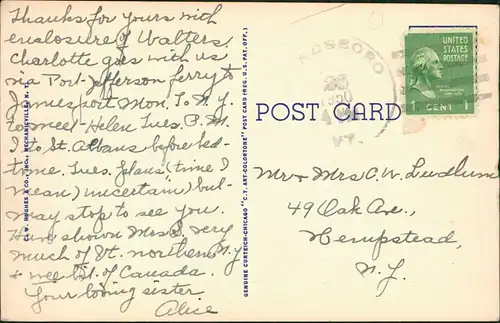 Thanks for yours with
enclosure of Walters
Charlotte goes with us
via Port Jefferson ferry to
Jamesport Mon. To N.Y.
to meet Helen Tues. P.M.
& to St. Albans before bed-
time. Tues. plans (time I
mean) uncertain, but
may stop to see you.
Have shown Mrs. S. very
much of Vt. northern N.Y.
& wee bit of Canada.
Your loving sister
Alice
C. W. HUGHES & CO., INC., MECHANICVILLE, N. Y.
GENUINE CURTEICH-CHICAGO "C.T. ART-COLORTONE" POST CARD (REG. U.S. PAT. OFF.)
POST CARD
OSBORO
26
1950
VT.
UNITED
STATES
POSTAGE
WASHINGTON
1 CENT 1
Mr & Mrs C. W. Ludlum
49 Oak Ave.,
Hempstead,
N.Y.